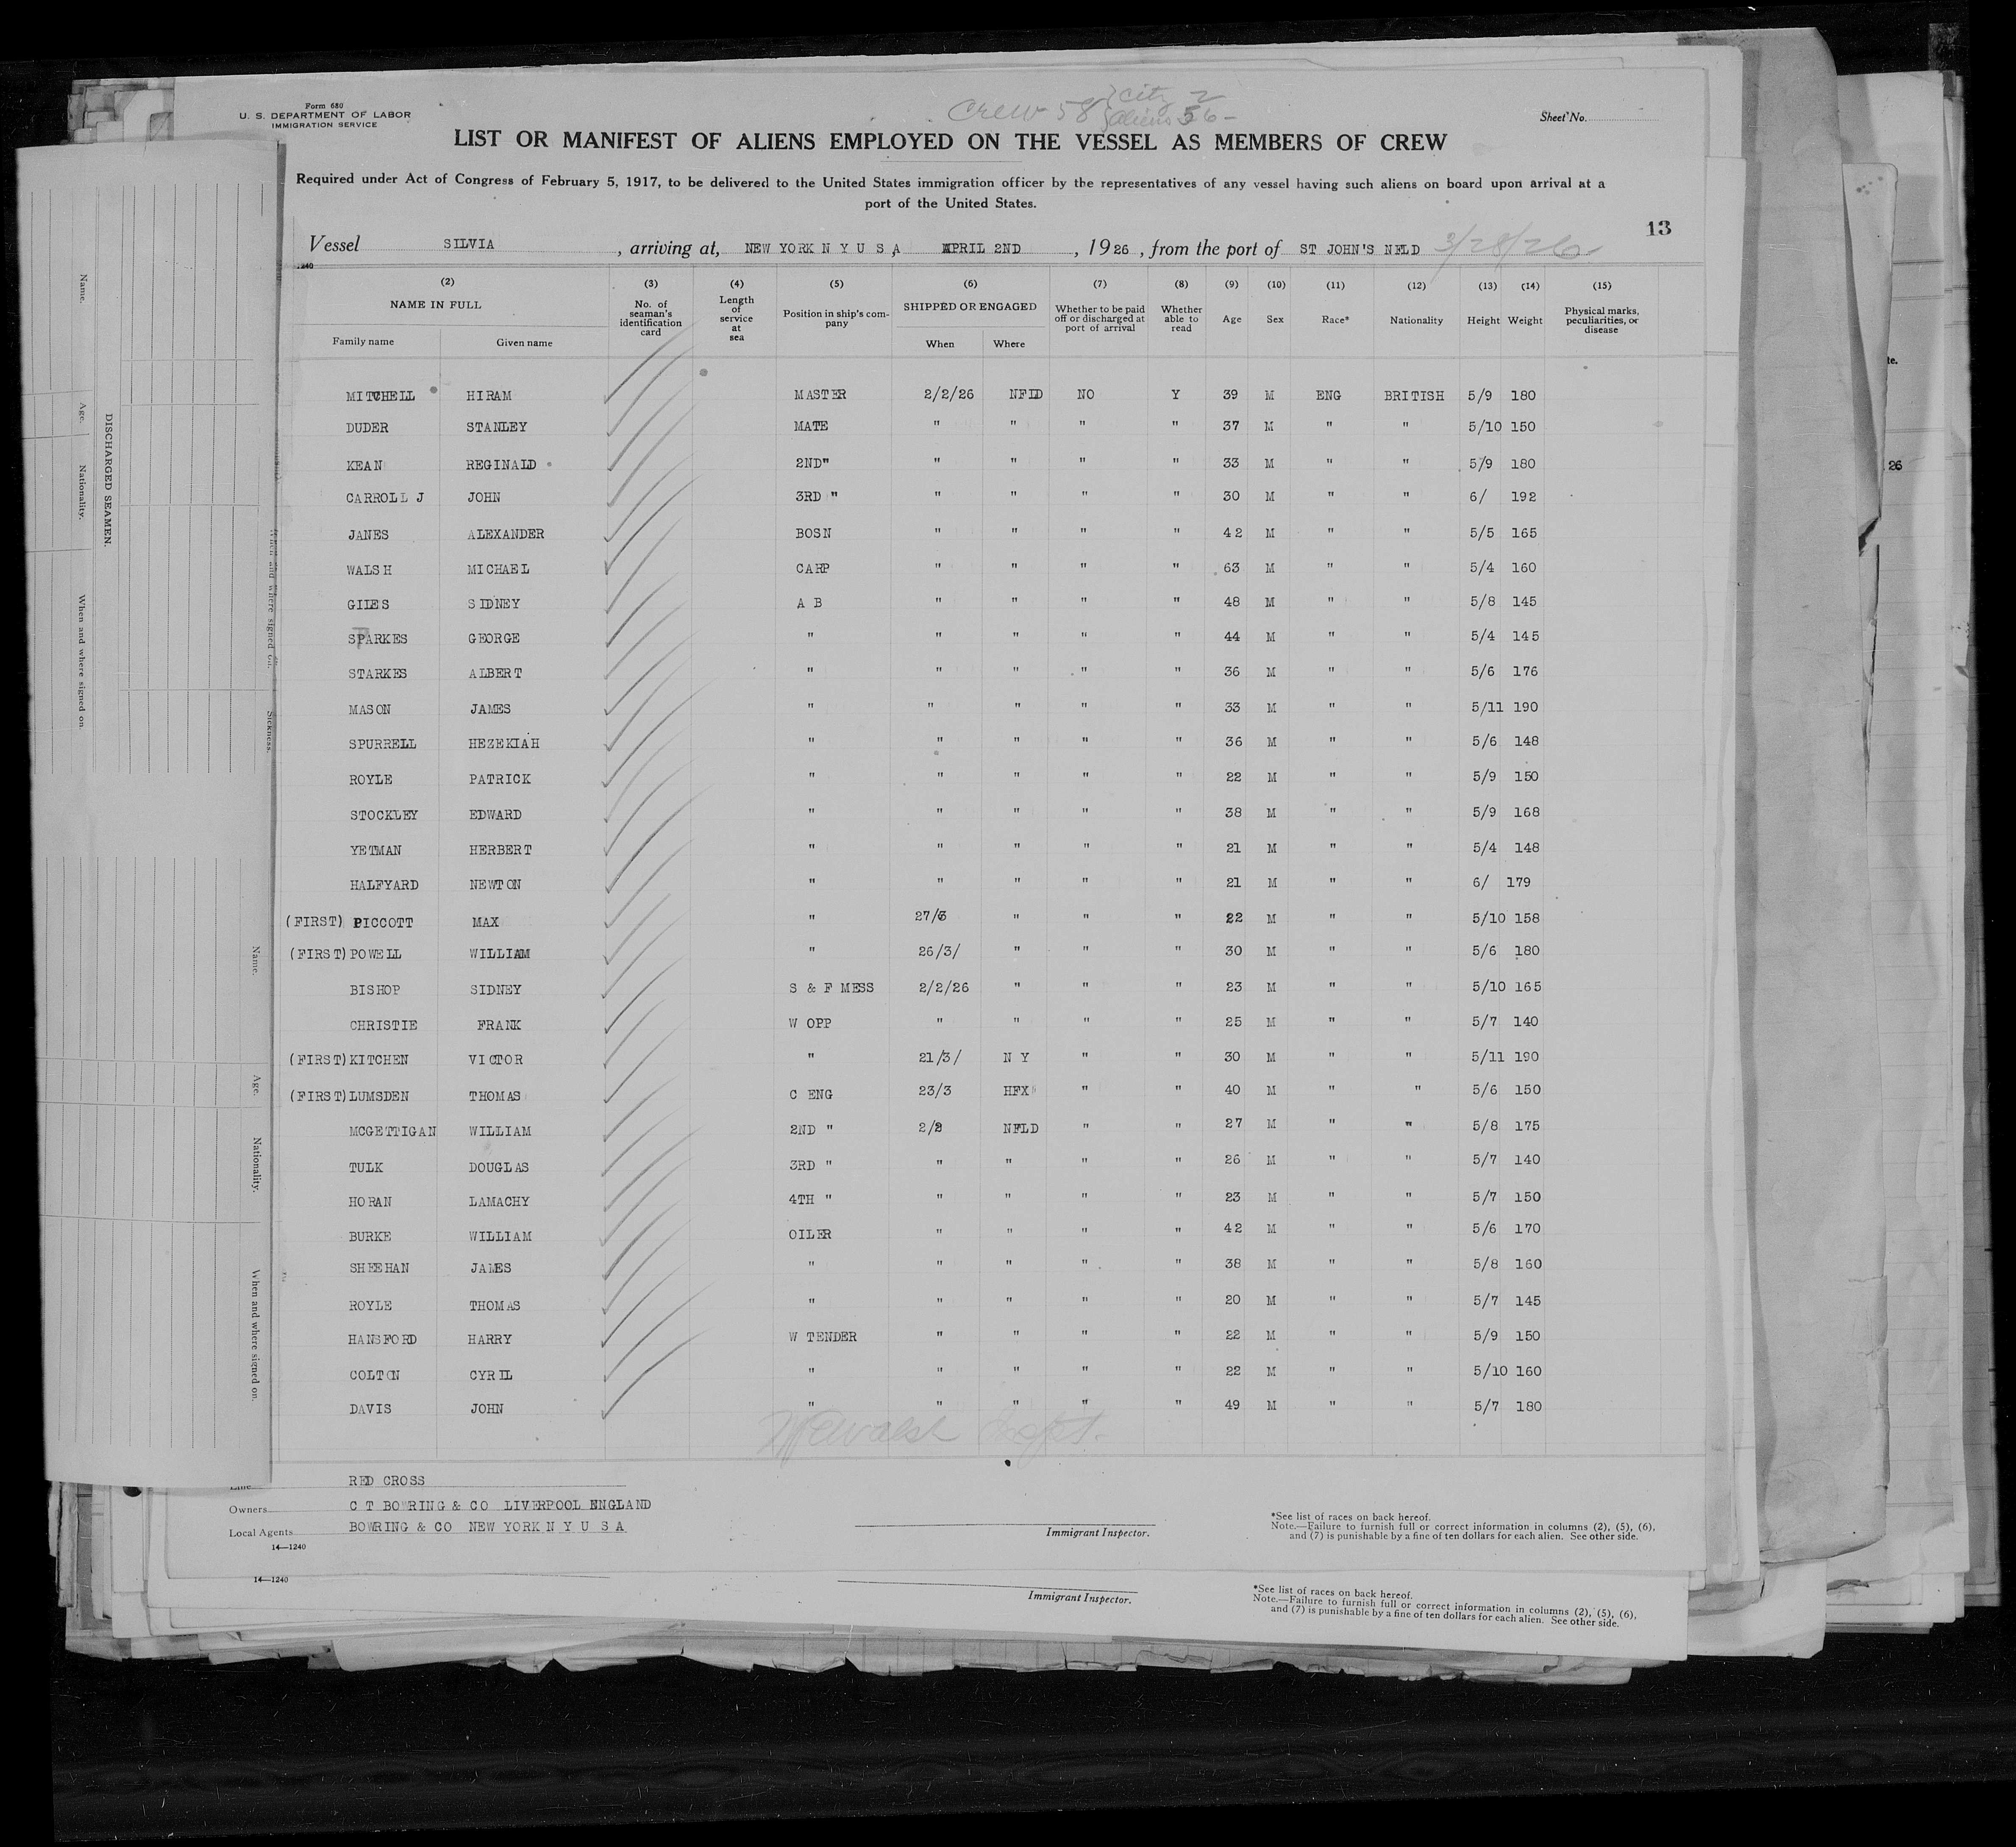 Form 680
U. S. DEPARTMENT OF LABOR
IMMIGRATION SERVICE
Crew 58 City 2
aliens 56-
Sheet No.
LIST OR MANIFEST OF ALIENS EMPLOYED ON THE VESSEL AS MEMBERS OF CREW
Required under Act of Congress of February 5, 1917, to be delivered to the United States immigration officer by the representatives of any vessel having such aliens on board upon arrival at a
port of the United States.
13
Vessel SILVIA , arriving at, NEW YORK N Y U S A , APRIL 2ND , 1926 , from the port of ST JOHN'S NFLD 3/28/26
1240
(2) (3) (4) (5) (6) (7) (8) (9) (10) (11) (12) (13) (14) (15)
NAME IN FULL No. of seaman's identification card Length of service at sea Position in ship's company SHIPPED OR ENGAGED Whether to be paid off or discharged at port of arrival Whether able to read Age Sex Race* Nationality Height Weight Physical marks, peculiarities, or disease
Family name Given name When Where
MITCHELL HIRAM MASTER 2/2/26 NFLD NO Y 39 M ENG BRITISH 5/9 180
DUDER STANLEY MATE " " " " 37 M " " 5/10 150
KEAN REGINALD 2ND" " " " " 33 M " " 5/9 180
CARROLL J JOHN 3RD " " " " " 30 M " " 6/ 192
JANES ALEXANDER BOSN " " " " 42 M " " 5/5 165
WALSH MICHAEL CARP " " " " 63 M " " 5/4 160
GILES SIDNEY A B " " " " 48 M " " 5/8 145
SPARKES GEORGE " " " " " 44 M " " 5/4 145
STARKES ALBERT " " " " " 36 M " " 5/6 176
MASON JAMES " " " " " 33 M " " 5/11 190
SPURRELL HEZEKIAH " " " " " 36 M " " 5/6 148
ROYLE PATRICK " " " " " 22 M " " 5/9 150
STOCKLEY EDWARD " " " " " 38 M " " 5/9 168
YETMAN HERBERT " " " " " 21 M " " 5/4 148
HALFYARD NEWTON " " " " " 21 M " " 6/ 179
(FIRST) PICCOTT MAX " 27/3 " " " 22 M " " 5/10 158
(FIRST) POWELL WILLIAM " 26/3/ " " " 30 M " " 5/6 180
BISHOP SIDNEY S & F MESS 2/2/26 " " " 23 M " " 5/10 165
CHRISTIE FRANK W OPP " " " " 25 M " " 5/7 140
(FIRST) KITCHEN VICTOR " 21/3/ N Y " " 30 M " " 5/11 190
(FIRST) LUMSDEN THOMAS C ENG 23/3 HFX " " 40 M " " 5/6 150
MCGETTIGAN WILLIAM 2ND " 2/2 NFLD " " 27 M " " 5/8 175
TULK DOUGLAS 3RD " " " " " 26 M " " 5/7 140
HORAN LAMACHY 4TH " " " " " 23 M " " 5/7 150
BURKE WILLIAM OILER " " " " 42 M " " 5/6 170
SHEEHAN JAMES " " " " " 38 M " " 5/8 160
ROYLE THOMAS " " " " " 20 M " " 5/7 145
HANSFORD HARRY W TENDER " " " " 22 M " " 5/9 150
COLTON CYRIL " " " " " 22 M " " 5/10 160
DAVIS JOHN " " " " " 49 M " " 5/7 180
Line RED CROSS
Owners C T BOWRING & CO LIVERPOOL ENGLAND
Local Agents BOWRING & CO NEW YORK N Y U S A
14—1240
Immigrant Inspector.
*See list of races on back hereof.
Note.—Failure to furnish full or correct information in columns (2), (5), (6),
and (7) is punishable by a fine of ten dollars for each alien. See other side.
14—1240
Immigrant Inspector.
*See list of races on back hereof.
Note.—Failure to furnish full or correct information in columns (2), (5), (6),
and (7) is punishable by a fine of ten dollars for each alien. See other side.
DISCHARGED SEAMEN.
Name. Age. Nationality. When and where signed on.
When and where signed on. Sickness.
Name. Age. Nationality. When and where signed on.
te.
26